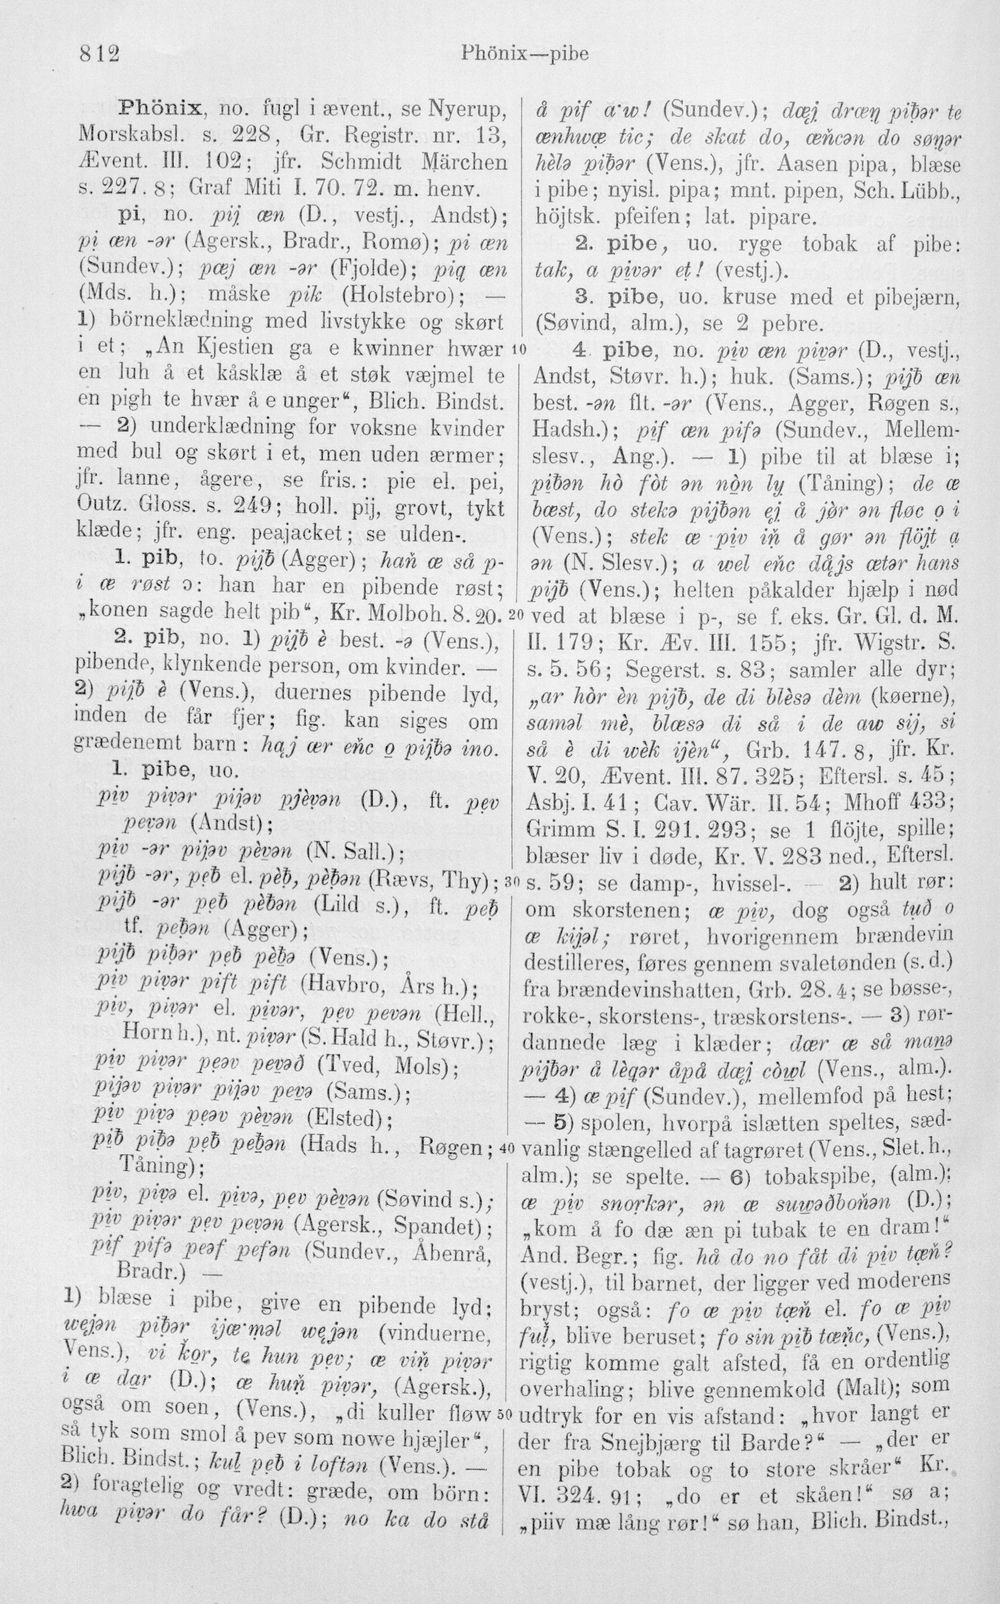 812
Phönix—pibe
Phönix, no. fugl i ævent., se Nyerup,
Morskabsl. s. 228, Gr. Registr. nr. 13,
Ævent. III. 102; jfr. Schmidt Märchen
s. 227. 8; Graf Miti I. 70. 72. m. henv.
pi, no. pij æn (D., vestj., Andst);
pi æn -ər (Agersk., Bradr., Romø); pi æn
(Sundev.); pæj æn -ər (Fjolde); piq æn
(Mds. h.); måske pik (Holstebro); —
1) börneklædning med livstykke og skørt
i et; „An Kjestien ga e kwinner hwær
en luh å et kåsklæ å et støk væjmel te
en pigh te hvær å e unger“, Blich. Bindst.
— 2) underklædning for voksne kvinder
med bul og skørt i et, men uden ærmer;
jfr. lanne, ågere, se fris.: pie el. pei,
Outz. Gloss. s. 249; holl. pij, grovt, tykt
klæde; jfr. eng. peajacket; se ulden-.
1. pib, to. pijƀ (Agger); hań æ så p-
i æ røst ɔ: han har en pibende røst;
„konen sagde helt pib“, Kr. Molboh. 8. 20.
2. pib, no. 1) pijƀ è best. -ə (Vens.),
pibende, klynkende person, om kvinder. —
2) pijƀ è (Vens.), duernes pibende lyd,
inden de får fjer; fig. kan siges om
grædenemt barn: hąj ær eńc o pijƀə ino.
1. pibe, uo.
piv piv̨ər pijəv pjèv̨ən (D.), ft. pev
pev̨ən (Andst);
piv -ər pijəv pèv̨ən (N. Sall.);
pijƀ -ər, peƀ el. pèƀ, pèƀən (Rævs, Thy);
pijƀ -ər peƀ pèƀən (Lild s.), ft. peƀ
tf. peƀən (Agger);
pijƀ piƀər peƀ pèƀə (Vens.);
piv piv̨ər pift pift (Havbro, Års h.);
piv, piv̨ər el. piv̨ər, pev pevən (Hell.,
Horn h.), nt. piv̨ər (S. Hald h., Støvr.);
piv piv̨ər peəv pev̨əð (Tved, Mols);
pijəv piv̨ər pijəv pev̨ə (Sams.);
piv piv̨ə peəv pèv̨ən (Elsted);
piƀ piƀə peƀ peƀən (Hads h., Røgen;
Tåning);
piv, piv̨ə el. piv̨ə, pev pèv̨ən (Søvind s.);
piv piv̨ər pev pev̨ən (Agersk., Spandet);
pif pifə peəf pefən (Sundev., Åbenrå,
Bradr.) —
1) blæse i pibe, give en pibende lyd;
wejən piƀər ijæ·məl wejən (vinduerne,
Vens.), vi kor, te hun pev; æ viń piv̨ər
i æ dąr (D.); æ huń piv̨ər, (Agersk.),
også om soen, (Vens.), „di kuller fløw
så tyk som smol å pev som nowe hjæjler“,
Blich. Bindst.; kul peƀ i loftən (Vens.). —
2) foragtelig og vredt: græde, om börn:
hwa piv̨ər do får? (D.); no ka do stå
å pif a·w! (Sundev.); dæj dræŋ piƀər te
ænhwæ tic; de skat do, æńcən do søŋər
hèlə piƀər (Vens.), jfr. Aasen pipa, blæse
i pibe; nyisl. pipa; mnt. pipen, Sch. Lübb.,
höjtsk. pfeifen; lat. pipare.
2. pibe, uo. ryge tobak af pibe:
tak, a piv̨ər et! (vestj.).
3. pibe, uo. kruse med et pibejærn,
(Søvind, alm.), se 2 pebre.
10 4. pibe, no. piv æn piv̨ər (D., vestj.,
Andst, Støvr. h.); huk. (Sams.); pijƀ æn
best. -ən flt. -ər (Vens., Agger, Røgen s.,
Hadsh.); pif æn pifə (Sundev., Mellem-
slesv., Ang.). — 1) pibe til at blæse i;
piƀən hò fòt ən nòn ly (Tåning); de æ
bæst, do stekə pijƀən ej å jør ən fløc o i
(Vens.); stek æ piv iń å gør ən flöjt ą
ən (N. Slesv.); a wel eńc dåjs ætər hans
pijƀ (Vens.); helten påkalder hjælp i nød
20 ved at blæse i p-, se f. eks. Gr. Gl. d. M.
II. 179; Kr. Æv. III. 155; jfr. Wigstr. S.
s. 5. 56; Segerst. s. 83; samler alle dyr;
„ar hòr èn pijƀ, de di blèsə dèm (køerne),
saməl mè, blæsə di så i de aw sij, si
så è di wèk ijèn“, Grb. 147. 8, jfr. Kr.
V. 20, Ævent. III. 87. 325; Eftersl. s. 45;
Asbj. I. 41; Cav. Wär. II. 54; Mhoff 433;
Grimm S. I. 291. 293; se 1 flöjte, spille;
blæser liv i døde, Kr. V. 283 ned., Eftersl.
30 s. 59; se damp-, hvissel-. — 2) hult rør:
om skorstenen; æ piv, dog også tuð o
æ kijəl; røret, hvorigennem brændevin
destilleres, føres gennem svaletønden (s. d.)
fra brændevinshatten, Grb. 28. 4; se bøsse-,
rokke-, skorstens-, træskorstens-. — 3) rør-
dannede læg i klæder; dær æ så manə
pijƀər å lèqər åpå dæj còwl (Vens., alm.).
— 4) æ pif (Sundev.), mellemfod på hest;
— 5) spolen, hvorpå islætten speltes, sæd-
40 vanlig stængelled af tagrøret (Vens., Slet. h.,
alm.); se spelte. — 6) tobakspibe, (alm.);
æ piv snorkər, ən æ suwəðbońən (D.);
„kom å fo dæ æn pi tubak te en dram!“
And. Begr.; fig. hå do no fåt di piv tæń?
(vestj.), til barnet, der ligger ved moderens
bryst; også: fo æ piv tæń el. fo æ piv
ful, blive beruset; fo sin piƀ tæńc, (Vens.),
rigtig komme galt afsted, få en ordentlig
overhaling; blive gennemkold (Malt); som
50 udtryk for en vis afstand: „hvor langt er
der fra Snejbjærg til Barde?“ — „der er
en pibe tobak og to store skråer“ Kr.
VI. 324. 91; „do er et skåen!“ sø a;
„piiv mæ lång rør!“ sø han, Blich. Bindst.,